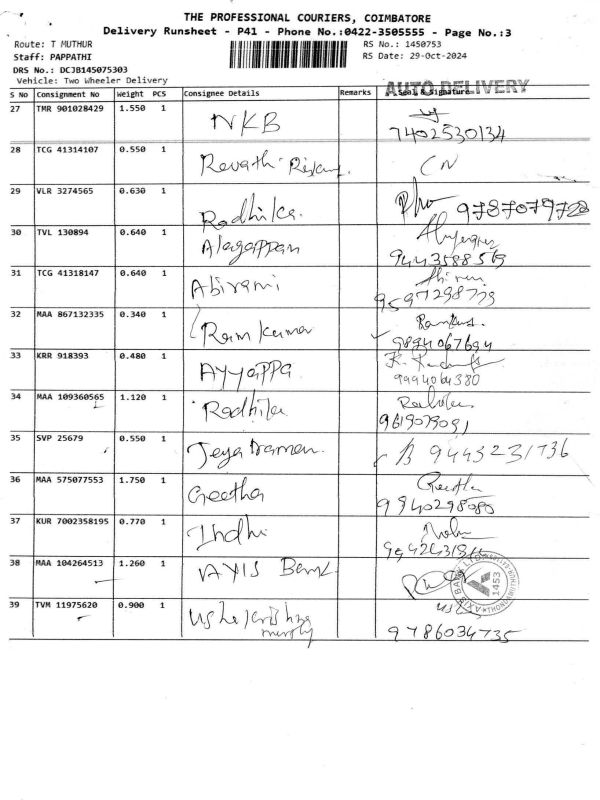 THE PROFESSIONAL COURIERS, COIMBATORE
Delivery Runsheet - P41 - Phone No.:0422-3505555 - Page No.:3
Route: T MUTHUR
RS No.: 1450753
Staff: PAPPATHI
RS Date: 29-Oct-2024
DRS No.: DCJB145075303
Vehicle: Two Wheeler Delivery
AUTO DELIVERY
S No Consignment No Weight PCS Consignee Details Remarks Seal & Signature
27 TMR 901028429 1.550 1 NKB
7402530134
28 TCG 41314107 0.550 1 Revathi CN
29 VLR 3274565 0.630 1 Radhika.
9787079728
30 TVL 130894 0.640 1 Alagappan
9443588569
31 TCG 41318147 0.640 1 Abirami
9597298779
32 MAA 867132335 0.340 1 Ram Kumar
9894067694
33 KRR 918393 0.480 1 AYYAPPA
9994064380
34 MAA 109360565 1.120 1 Radhika
9619079091
35 SVP 25679 0.550 1 Jeya Raman. 9443231736
36 MAA 575077553 1.750 1 Geetha Geetha
9940298080
37 KUR 7002358195 0.770 1
38 MAA 104264513 1.260 1 AXIS Bank
AXIS BANK LTD 1453
39 TVM 11975620 0.900 1 Usha krishna
murthy
usha
9786034735